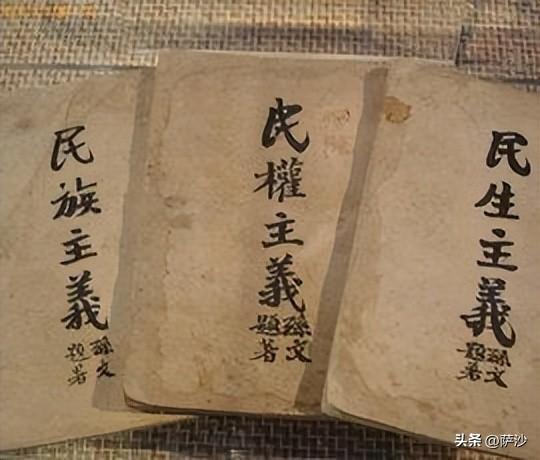 民族主義
孫文
題著
民權主義
孫文
題著
民生主義
孫文
題著
头条 @萨沙